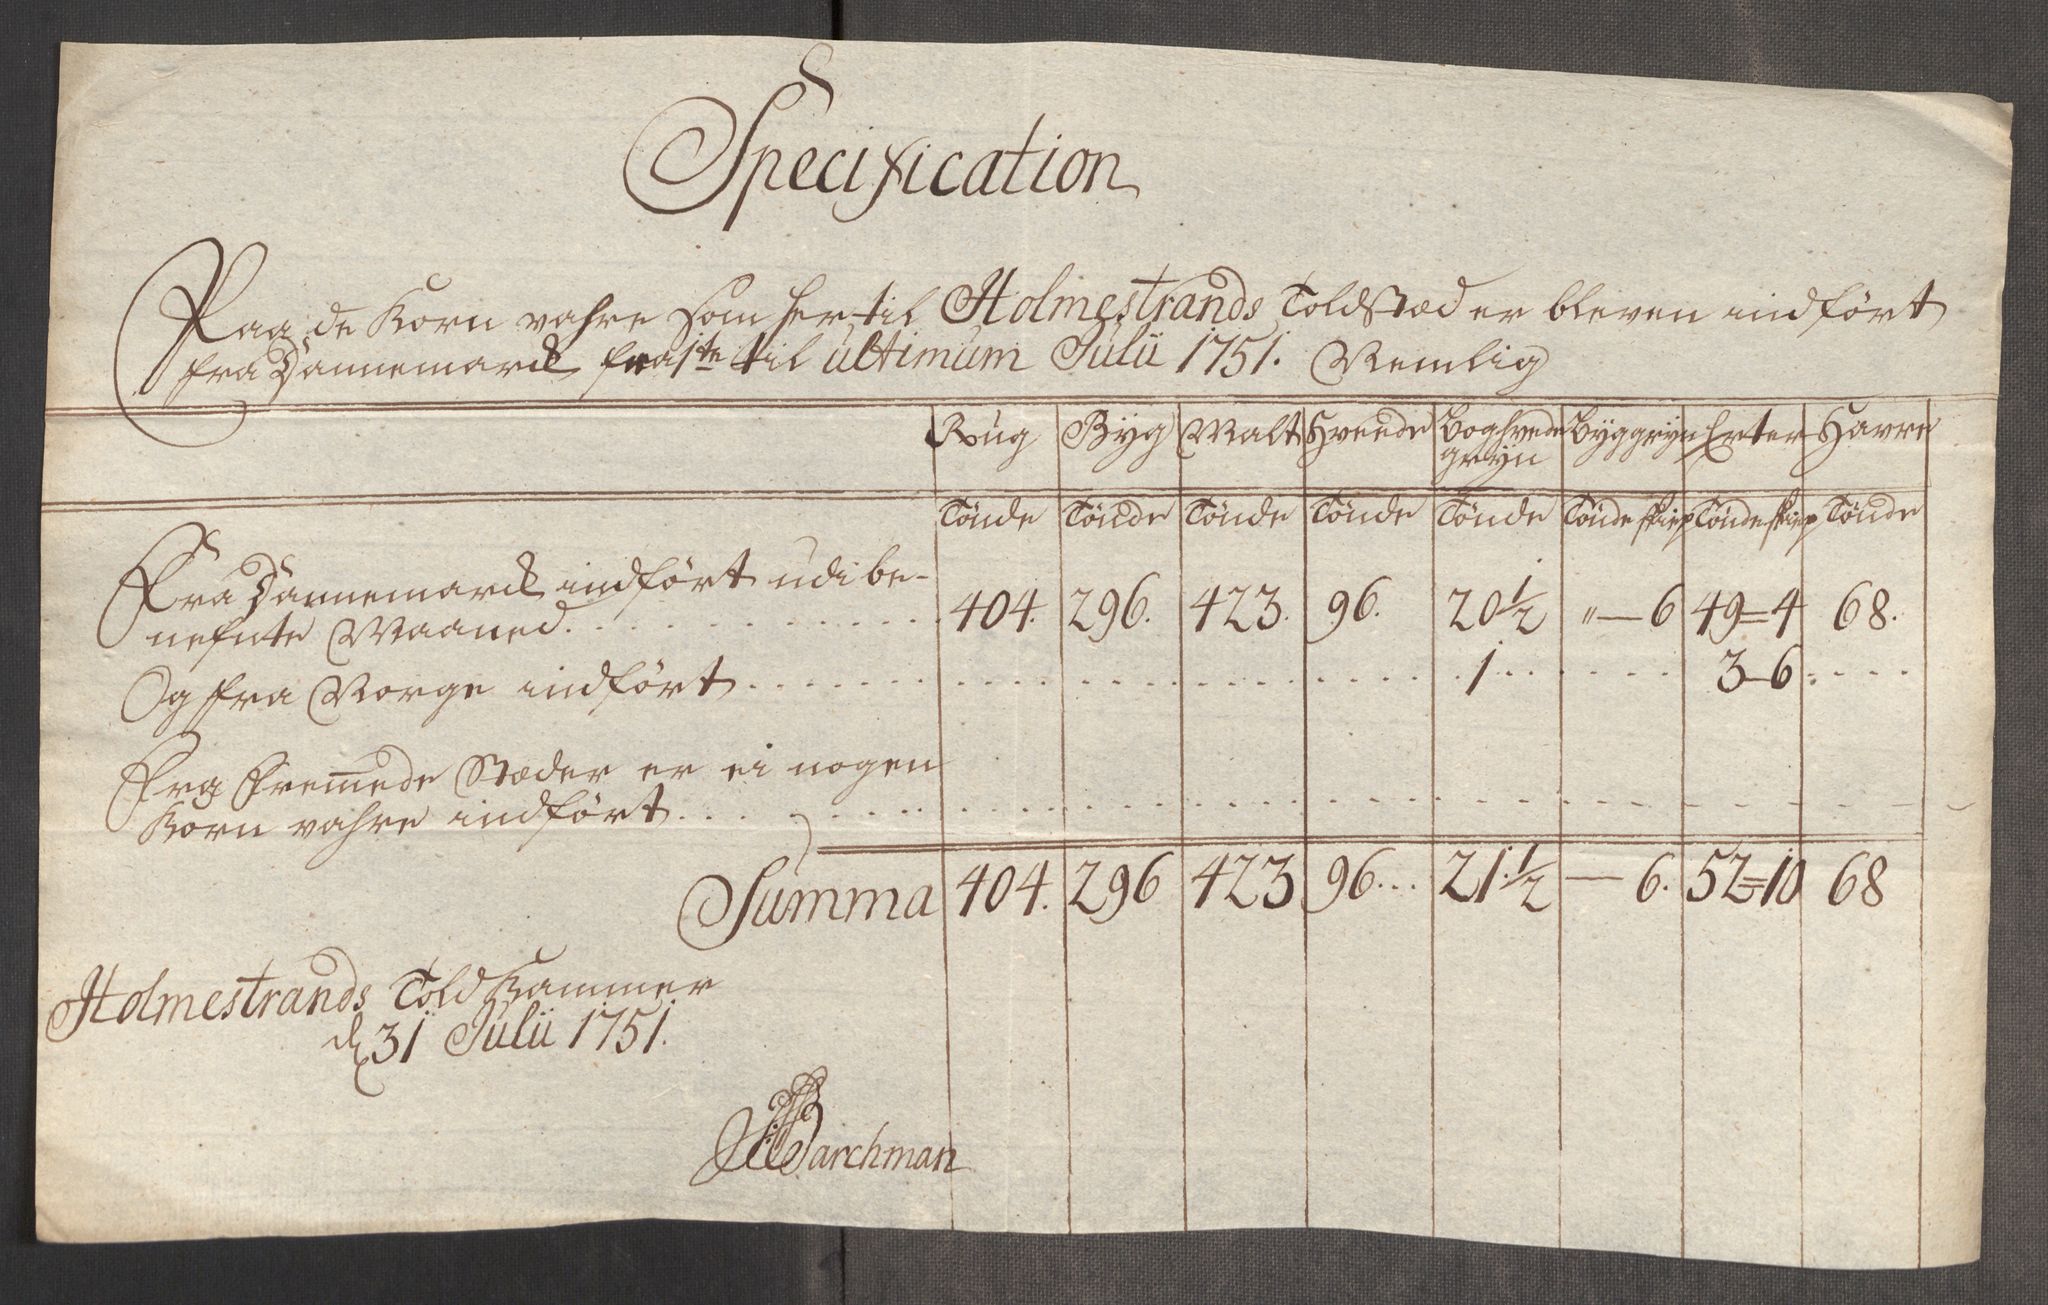 Specification
Paa de Korn vahre som her til Holmestrands Toldstæd er bleven indført
fra Dannemarck fra 1te til ultimum Julii 1751. Nemlig
Rug Byg Malt Hvede Boghvede Byggryn Erter Havre
gryn
Tønde Tønde Tønde Tønde Tønde Tønde skiep Tønde skiep Tønde
Fra Dannemarck indført udi be-
nefnte Maaned. 404. 296. 423. 96. 20 1/2 "—6 49=4 68.
Og fra Norge indført 1 3-6
Fra Fremede Stæder er ei nogen
Korn vahre indført
Summa 404. 296 423 96... 21 1/2 — 6. 52=10 68
Holmestrands Told Kammer
d 31 Julii 1751.
Barchman